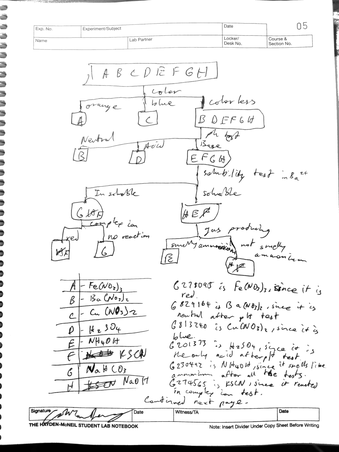 Exp. No.
Experiment/Subject
Date
05
Name
Lab Partner
Locker/
Desk No.
Course &
Section No.
A B C D E F G H
color
orange
blue
colorless
A
C
B D E F G H
Neutral
Acid
ph test
Base
B
D
E F G H
solubility test in Ba²⁺
Insoluble
soluble
G
H E F
complex ion
Gas producing
red
no reaction
smelly ammonium
not smelly
ammonium
G
A - Fe(NO₃)₃
B - Ba(NO₃)₂
C - Cu(NO₃)₂
D - H₂SO₄
E - NH₄OH
F - KSCN
G - NaHCO₃
H - NaOH
is Fe(NO₃)₃, since it is
red.
is Ba(NO₃)₂, since it is
neutral after ph test
is Cu(NO₃)₂, since it is
blue.
is H₂SO₄, since it is
the only acid after ph test
is NH₄OH, since it smells like
ammonium after all the tests.
is KSCN, since it reacted
in complex ion test.
Continued next page.
Signature
Date
Witness/TA
Date
THE HAYDEN-McNEIL STUDENT LAB NOTEBOOK
Note: Insert Divider Under Copy Sheet Before Writing